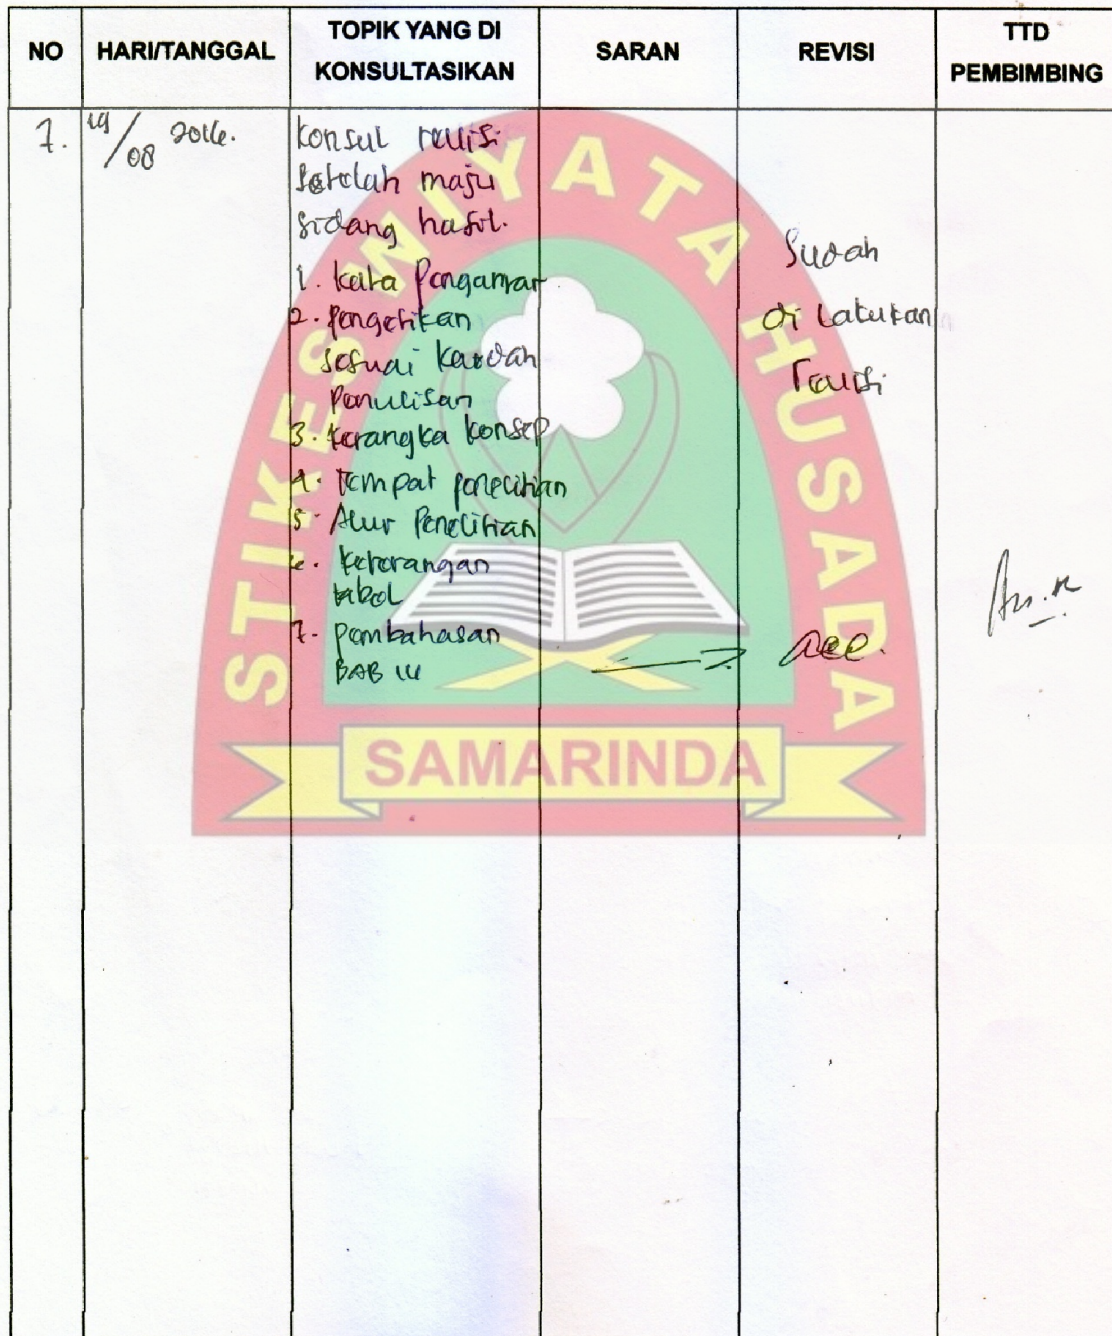 NO HARI/TANGGAL TOPIK YANG DI KONSULTASIKAN SARAN REVISI TTD PEMBIMBING
7. 19/08 2016.
konsul revisi
setelah maju
sidang hasil.
1. kata pengantar
2. pengetikan
sesuai kaidah
penulisan
3. kerangka konsep
4. tempat penelitian
5. Alur penelitian
6. keterangan
tabel
7. pembahasan
BAB III
Sudah
di lakukan
revisi
acc.
STIKES WIYATA HUSADA
SAMARINDA